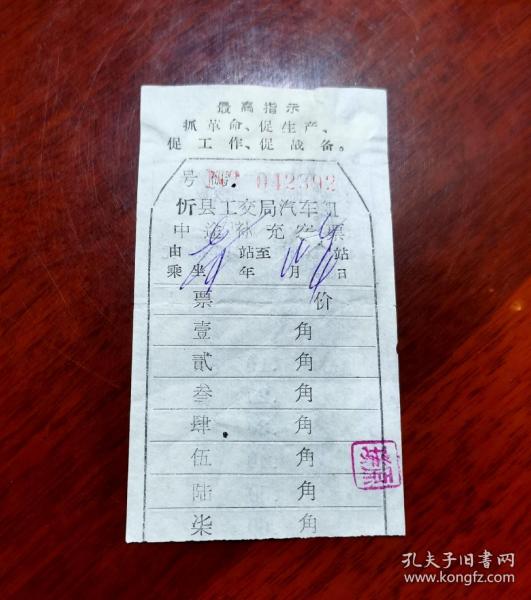 最高指示
抓革命、促生产、
促工作、促战备。
号 No 042392
忻县工交局汽车组
中途补充客票
由 站至 站
乘坐 年 月 日
票 价
壹 角
贰 角
叁 角
肆 角
伍 角
陆 角
柒 角
孔夫子旧书网
www.kongfz.com